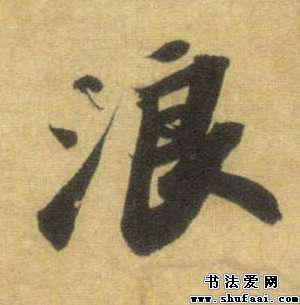 浪
书法爱网
www.shufaai.com